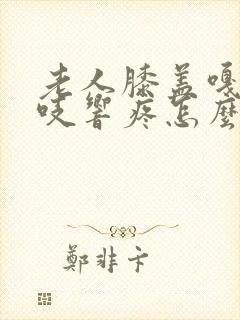 老人膝盖嘎
吱響疼怎麼
鄭非卞